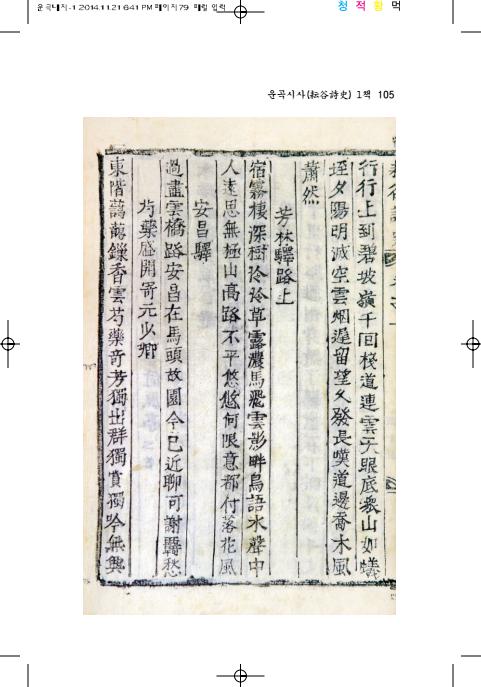 운곡내지-1 2014.11.21 6:41 PM 페이지79 매컬 입력
청 적 황 먹
운곡시사(耘谷詩史) 1책 105
行行上到碧坡嶺千回棧道連雲天眼底衆山如蟻
垤夕陽明滅空雲烟遲留望久發長嘆道邊喬木風
蕭然
芳林驛路上
宿霧棲深樹泠泠草露濃馬飛雲影畔鳥語水聲中
人遠思無極山高路不平悠悠何限意都付落花風
安昌驛
過盡雲橋路安昌在馬頭故園今已近聊可謝羇愁
芍藥盛開寄元少卿
東階藹藹鏁香雲芍藥奇芳獨出群獨賞獨吟無興